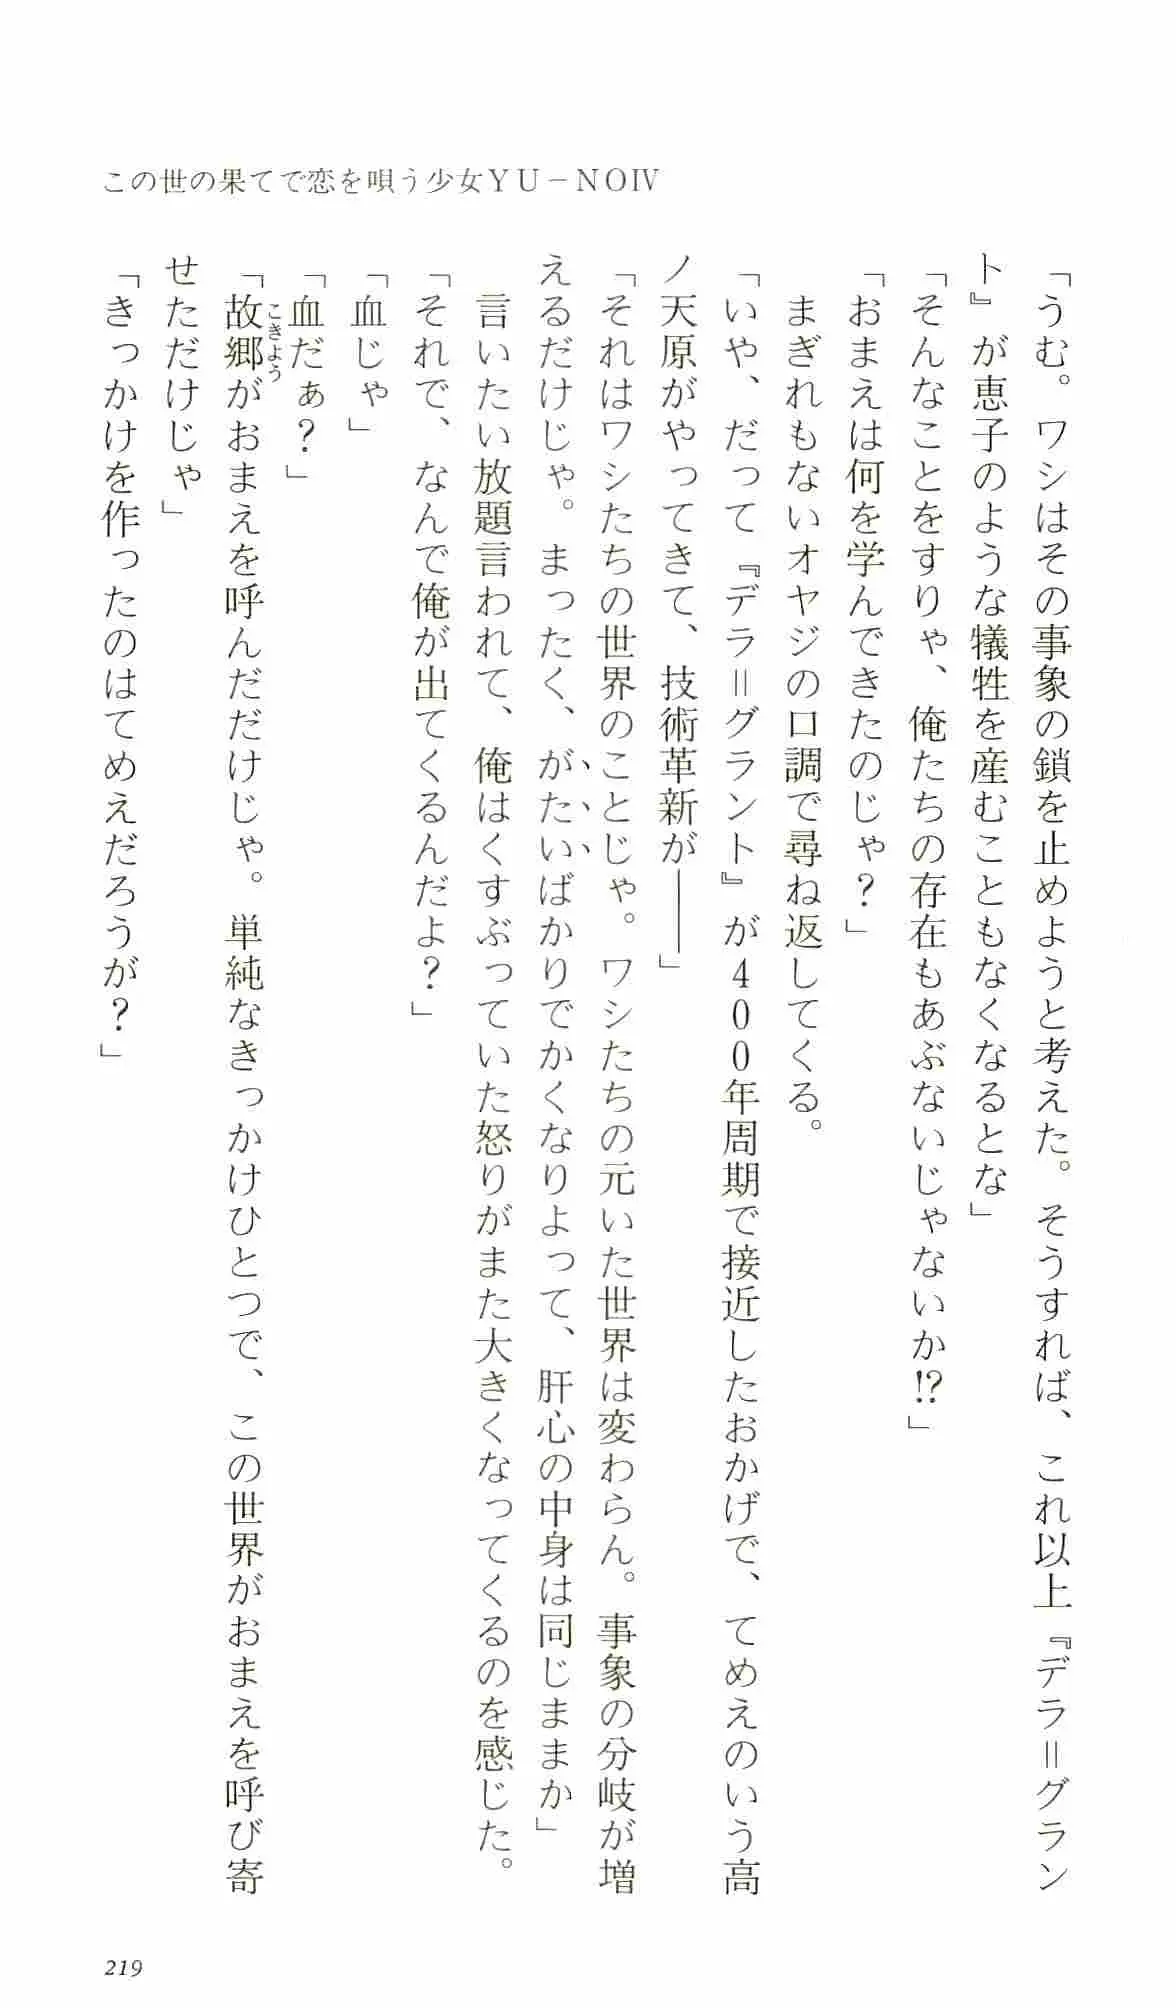 この世の果てで恋を唄う少女ＹＵ－ＮＯⅣ
「うむ。ワシはその事象の鎖を止めようと考えた。そうすれば、これ以上『デラ＝グラン
ト』が恵子のような犠牲を産むこともなくなるとな」
「そんなことをすりゃ、俺たちの存在もあぶないじゃないか⁉」
「おまえは何を学んできたのじゃ？」
まぎれもないオヤジの口調で尋ね返してくる。
「いや、だって『デラ＝グラント』が４００年周期で接近したおかげで、てめえのいう高
ノ天原がやってきて、技術革新が――」
「それはワシたちの世界のことじゃ。ワシたちの元いた世界は変わらん。事象の分岐が増
えるだけじゃ。まったく、がたいばかりでかくなりよって、肝心の中身は同じままか」
言いたい放題言われて、俺はくすぶっていた怒りがまた大きくなってくるのを感じた。
「それで、なんで俺が出てくるんだよ？」
「血じゃ」
「血だぁ？」
「故郷がおまえを呼んだだけじゃ。単純なきっかけひとつで、この世界がおまえを呼び寄
こきよう
せただけじゃ」
「きっかけを作ったのはてめえだろうが？」
219